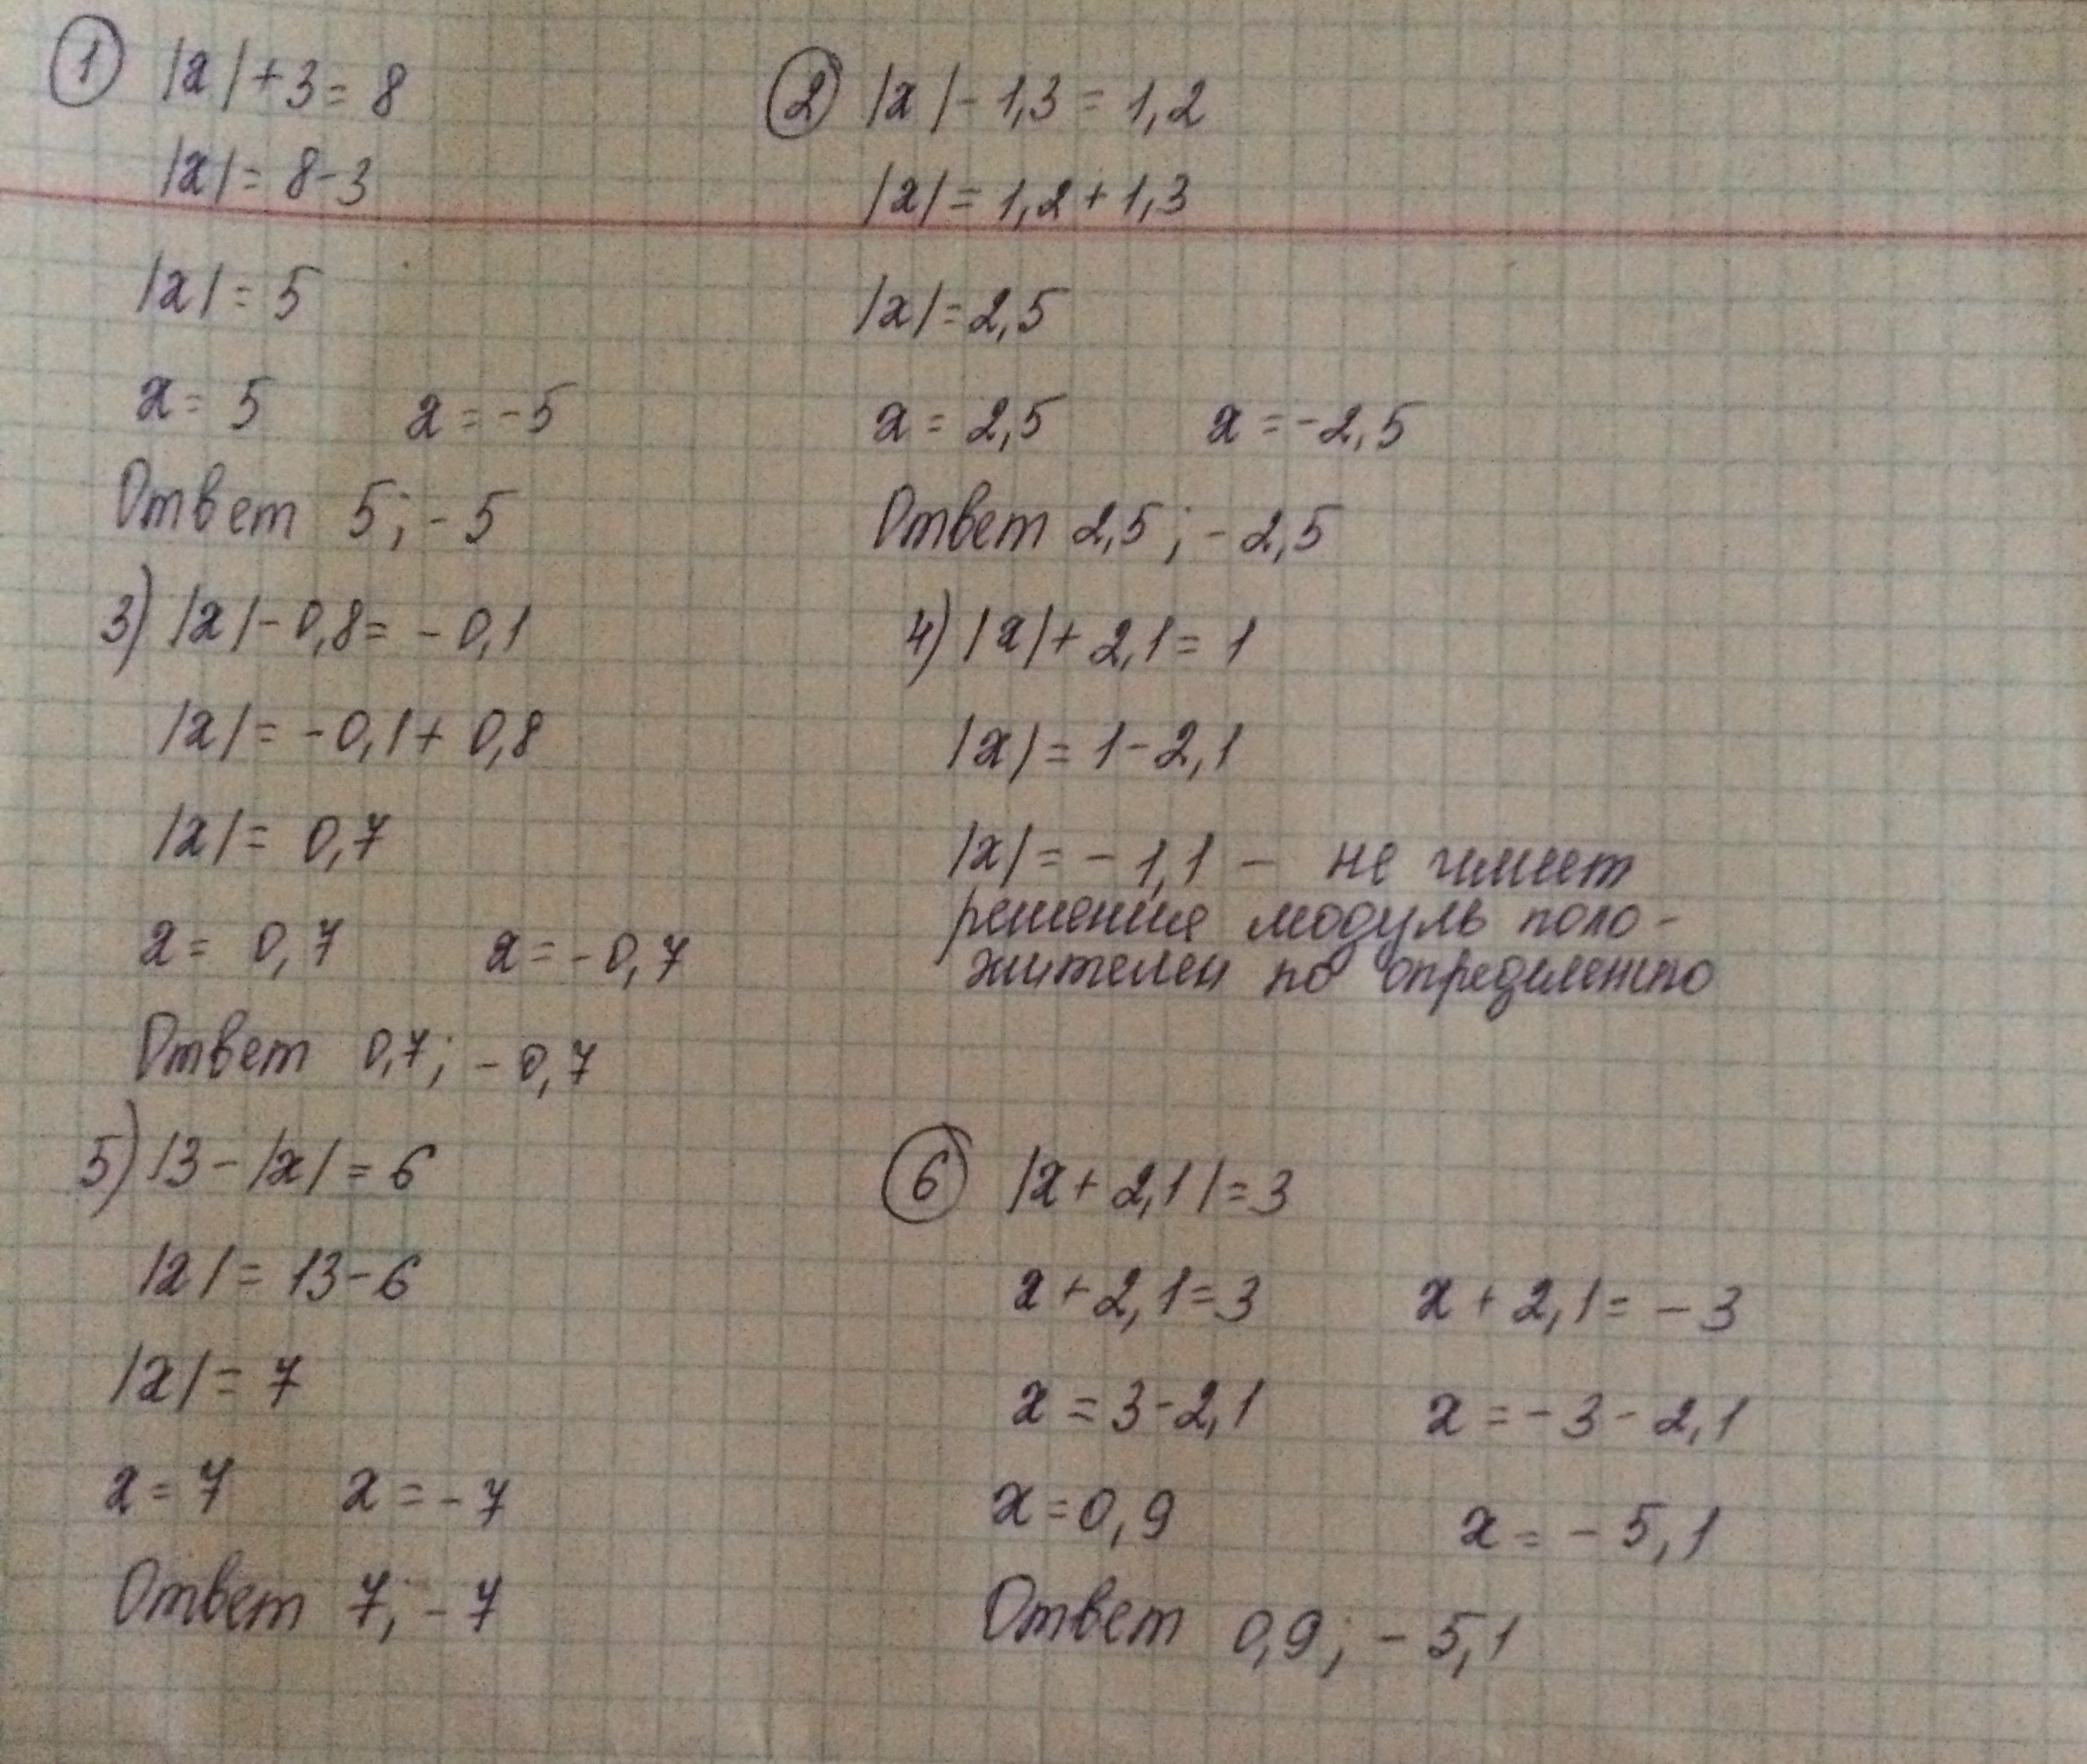 1 |x|+3=8
|x|=8-3
|x|=5
x=5 x=-5
Ответ 5;-5
2 |x|-1,3=1,2
|x|=1,2+1,3
|x|=2,5
x=2,5 x=-2,5
Ответ 2,5;-2,5
3) |x|-0,8=-0,1
|x|=-0,1+0,8
|x|=0,7
x=0,7 x=-0,7
Ответ 0,7;-0,7
4) |x|+2,1=1
|x|=1-2,1
|x|=-1,1 - не имеет
решения модуль поло-
жителен по определению
5) 13-|x|=6
|x|=13-6
|x|=7
x=7 x=-7
Ответ 7;-7
6 |x+2,1|=3
x+2,1=3 x+2,1=-3
x=3-2,1 x=-3-2,1
x=0,9 x=-5,1
Ответ 0,9;-5,1